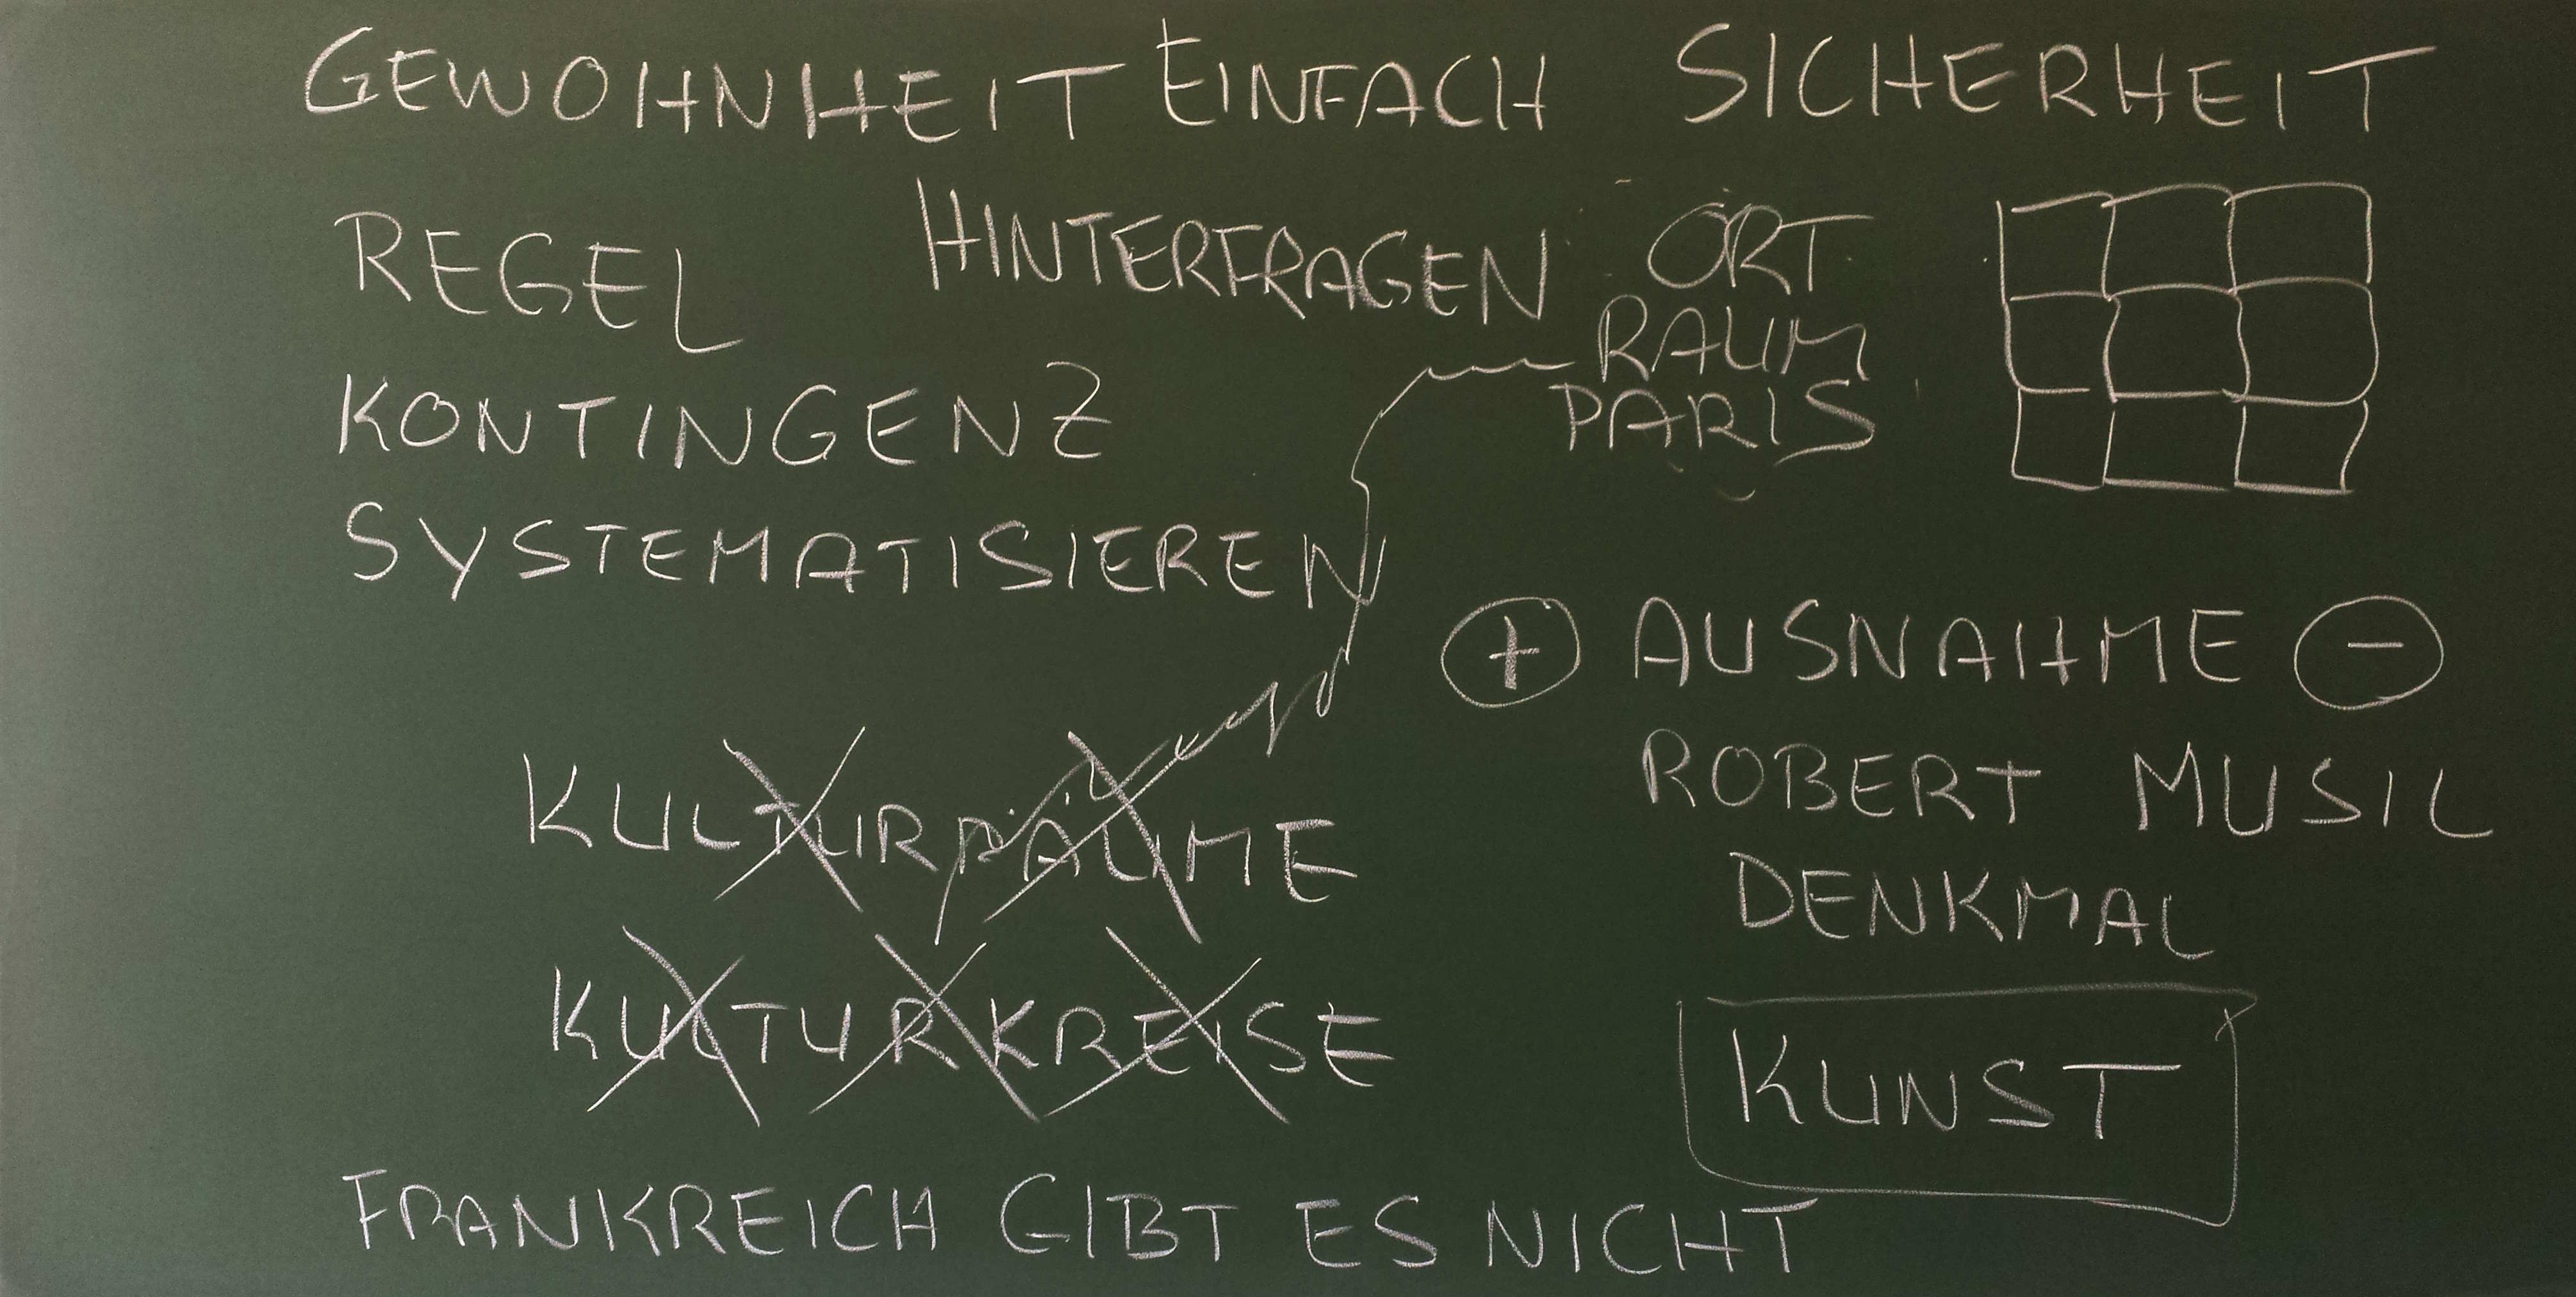 GEWOHNHEIT EINFACH SICHERHEIT
REGEL HINTERFRAGEN ORT
RAUM
KONTINGENZ PARIS
SYSTEMATISIEREN
+ AUSNAHME -
KULTURRÄUME ROBERT MUSIL
DENKMAL
KULTURKREISE KUNST
FRANKREICH GIBT ES NICHT